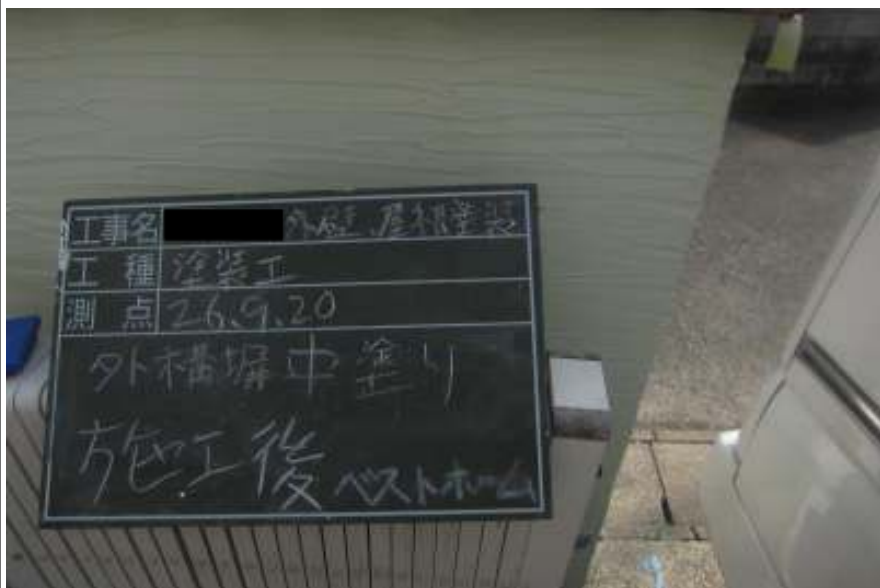 工事名 外壁、屋根塗装
工種 塗装工
測点 26.9.20
外構塀中塗り
施工後 ベストホーム